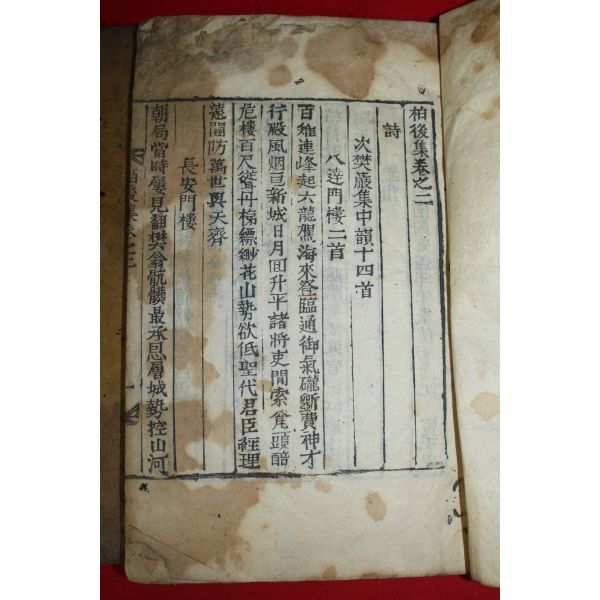 柏後集卷之二
詩
次樊巖集中韻十四首
八達門樓二首
百雉連峰起六龍駕海來登臨通御氣礲斲費神才
行殿風烟亘新城日月回升平諸將吏閒索瓮頭醅
危樓百尺聳丹梯縹緲花山勢欲低聖代君臣經理
遠關防萬世與天齊
長安門樓
朝局當時屢見翻樊翁骯髒最承恩層城勢控山河